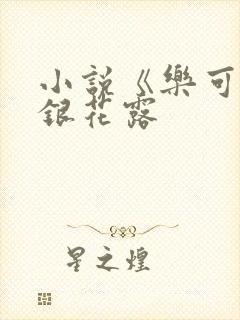 小說《樂可
銀花露
星之煌